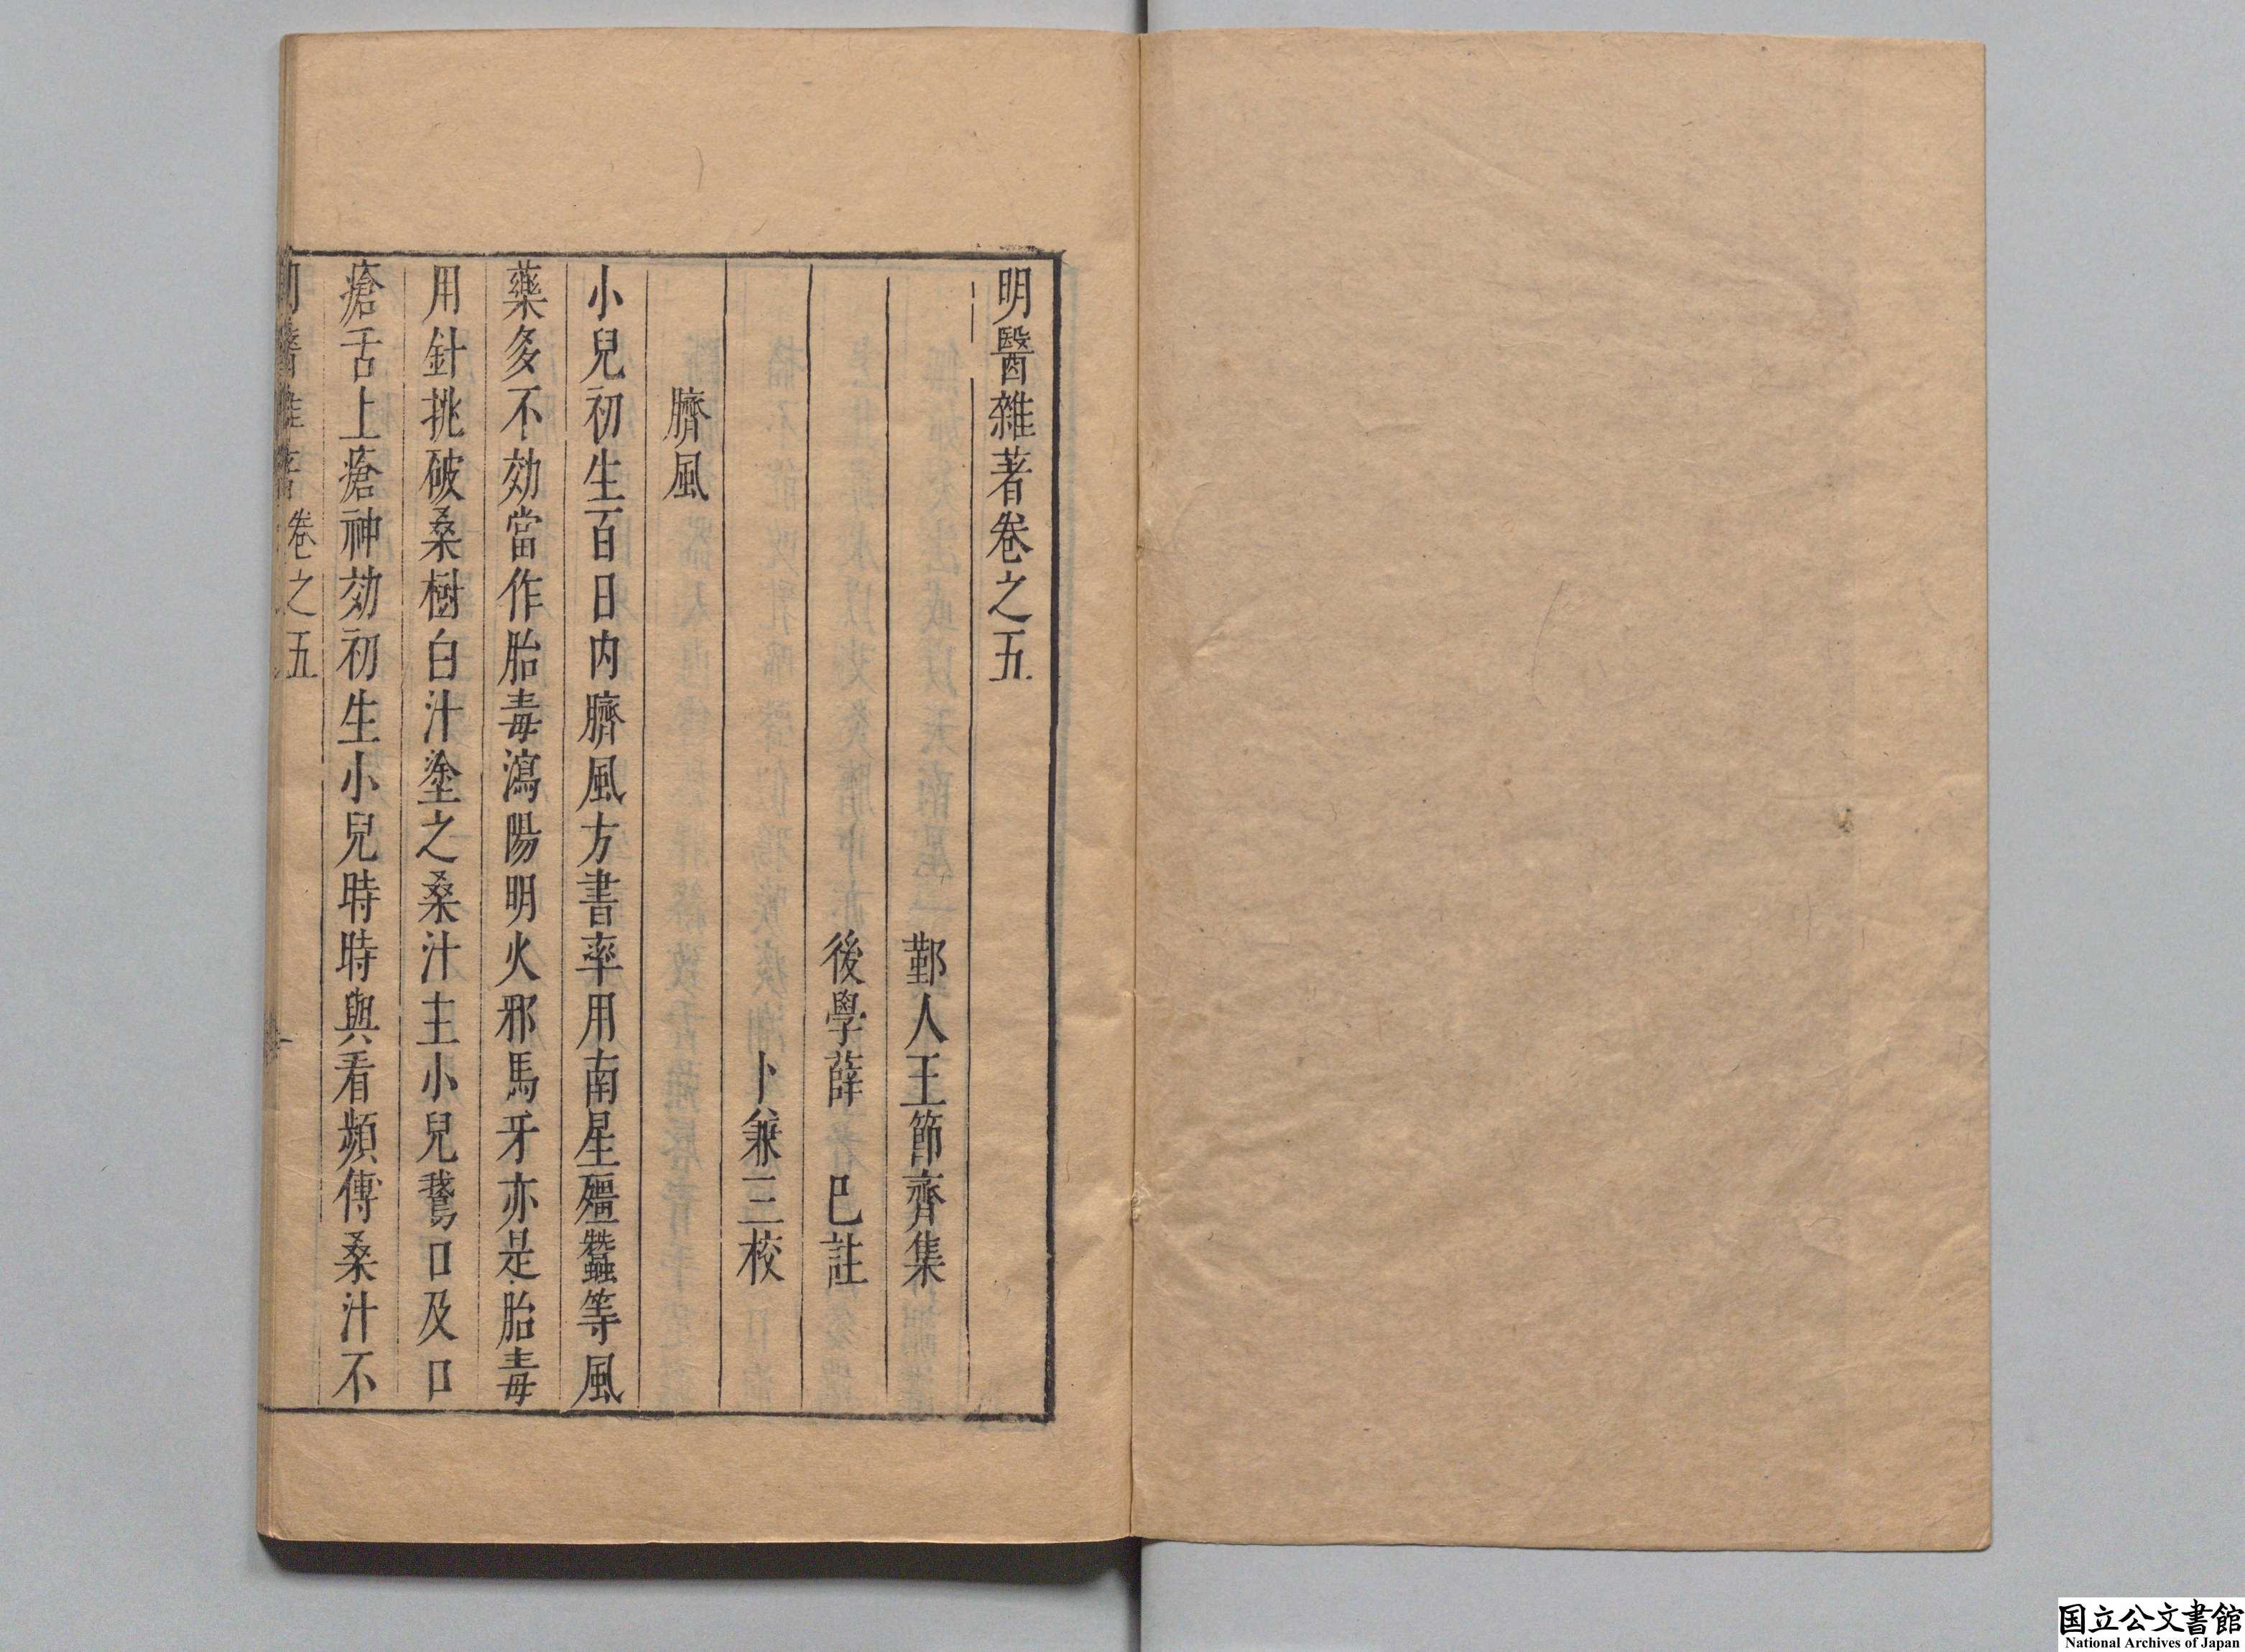 明醫雜著卷之五
鄞人王節齊集
後學薛　已註
卜兼三校
臍風
小兒初生百日内臍風方書率用南星殭蠶等風
藥多不効當作胎毒瀉陽明火邪馬牙亦是胎毒
用針挑破桑樹白汁塗之桑汁主小兒鵞口及口
瘡舌上瘡神効初生小兒時時與看頻傅桑汁不
明醫雜著卷之五
国立公文書館
National Archives of Japan